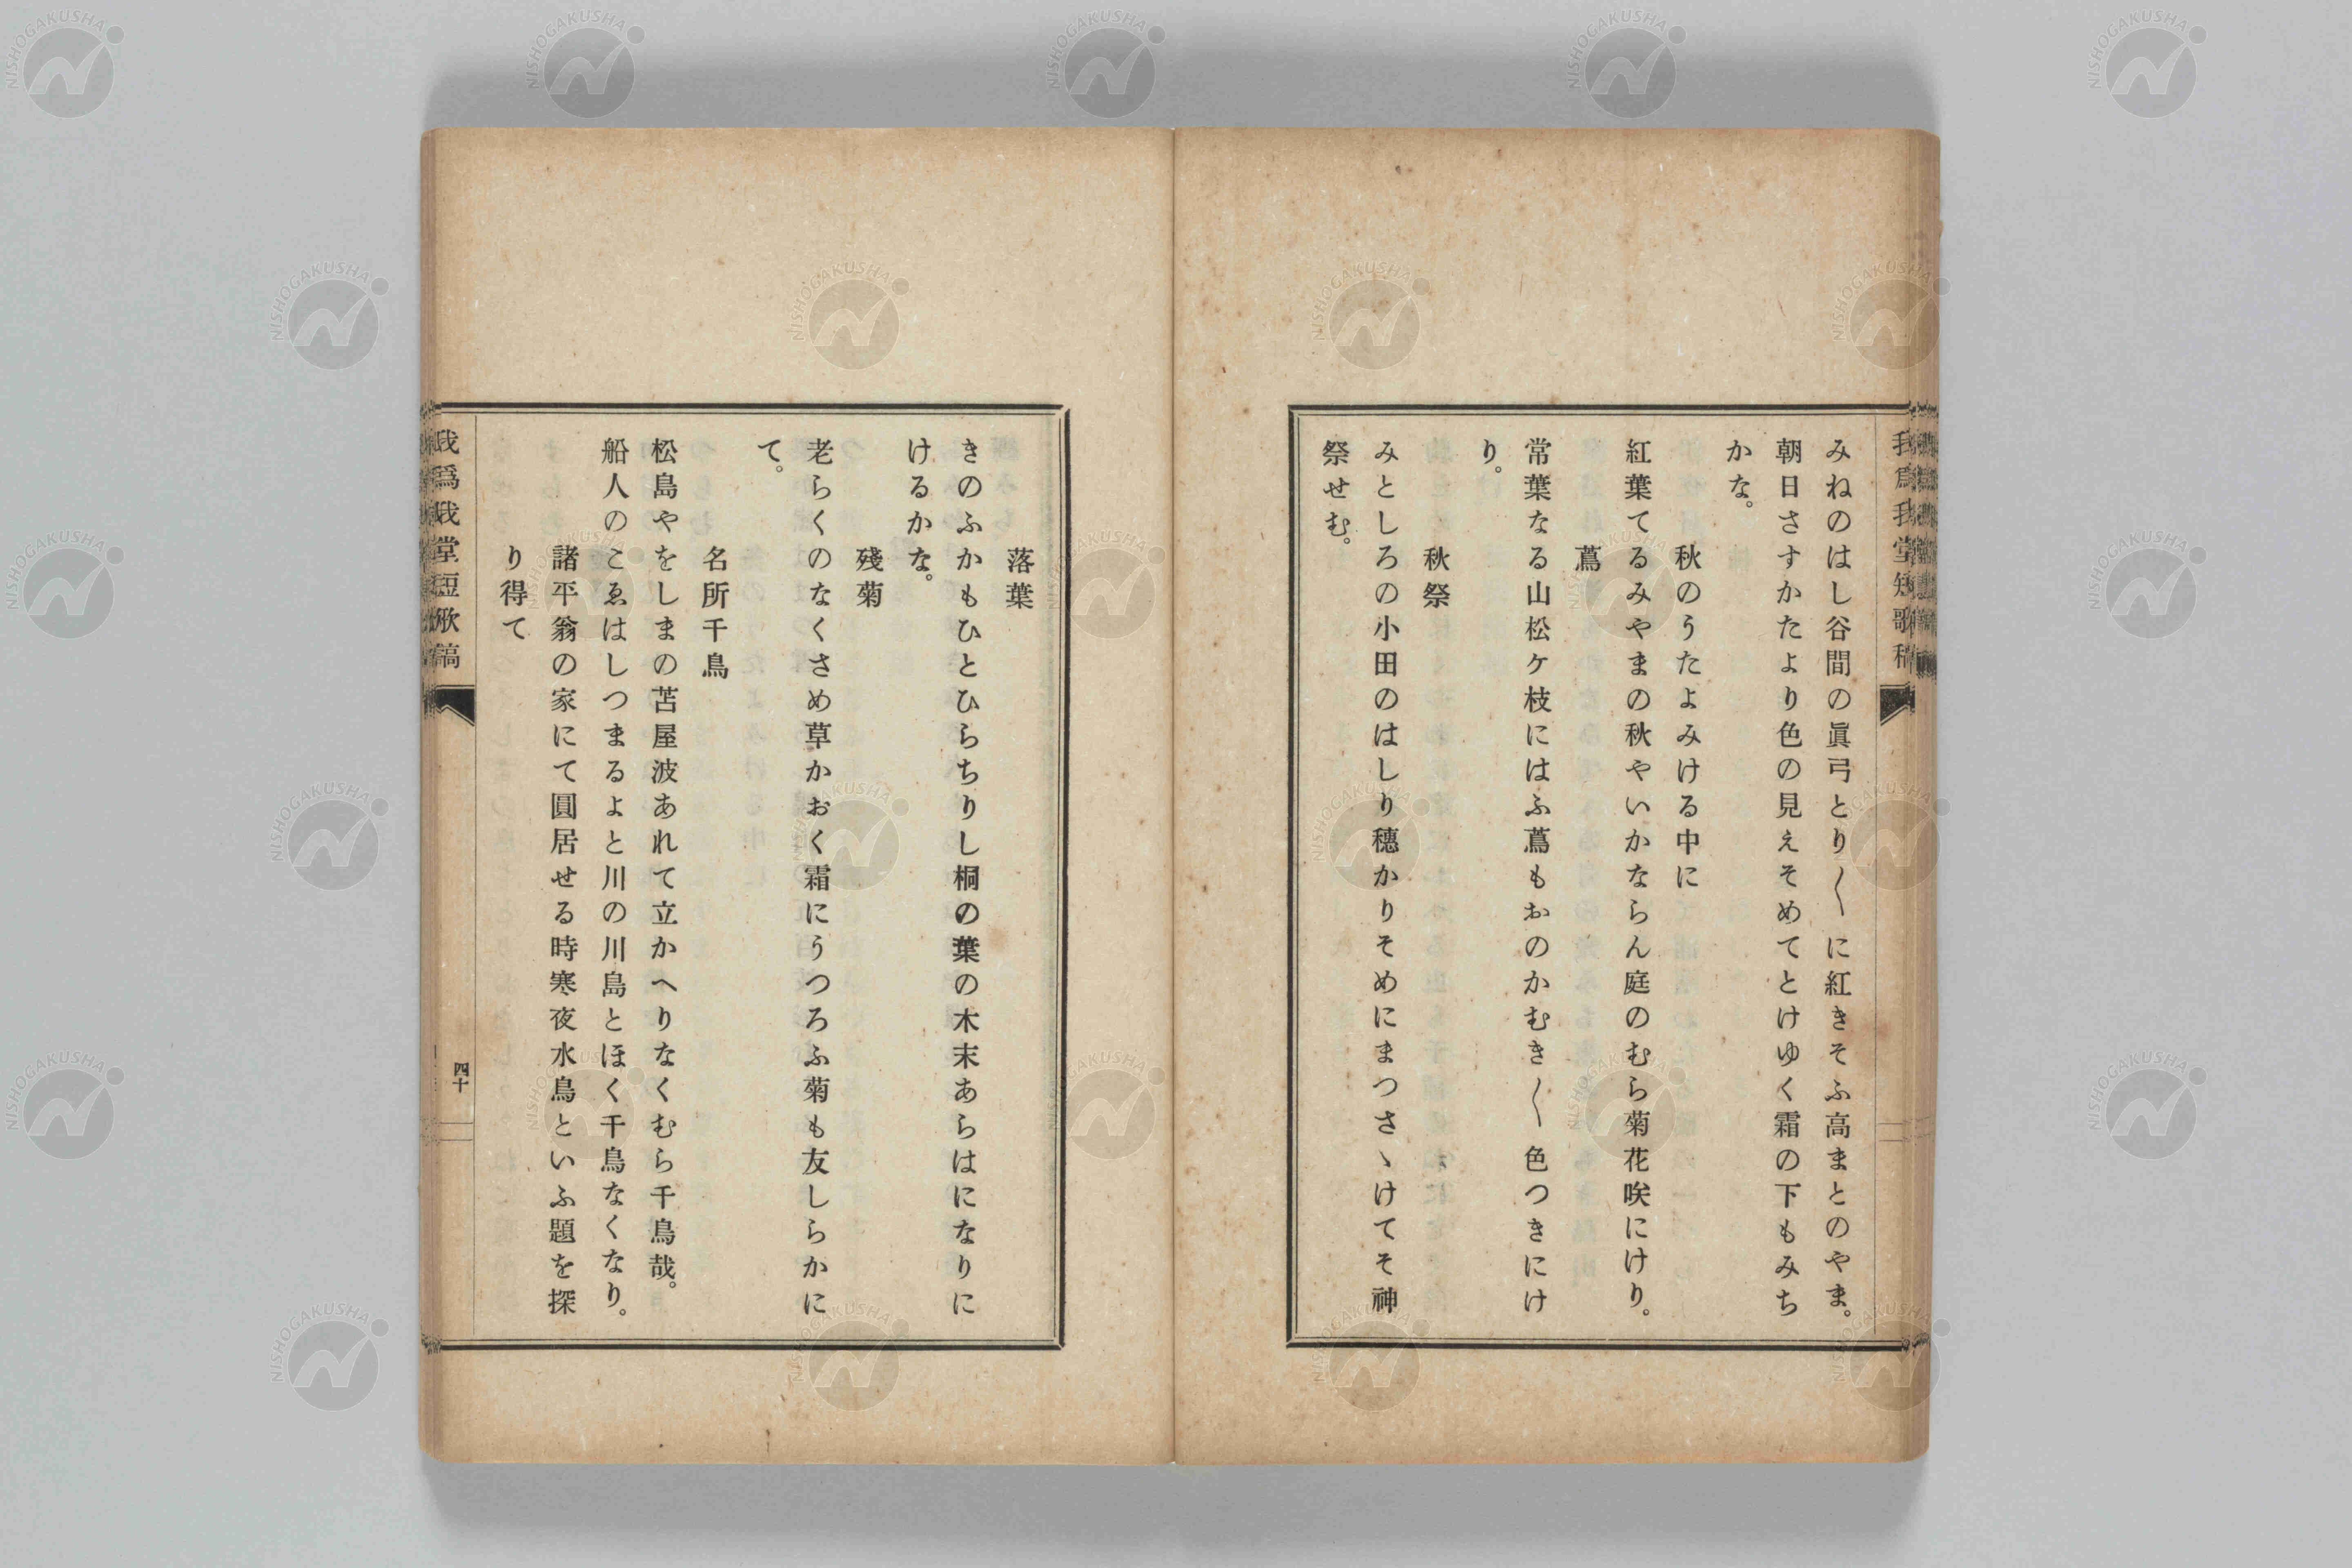 我爲我堂短歌稿
みねのはし谷間の眞弓とり〱に紅きそふ高まとのやま。
朝日さすかたより色の見えそめてとけゆく霜の下もみち
かな。
秋のうたよみける中に
紅葉てるみやまの秋やいかならん庭のむら菊花咲にけり。
蔦
常葉なる山松ケ枝にはふ蔦もおのかむき〱色つきにけ
り。
秋祭
みとしろの小田のはしり穗かりそめにまつさゝけてそ神
祭せむ。
落葉
きのふかもひとひらちりし桐の葉の木末あらはになりに
けるかな。
殘菊
老らくのなくさめ草かおく霜にうつろふ菊も友しらかに
て。
名所千鳥
松島やをしまの苫屋波あれて立かへりなくむら千鳥哉。
船人のこゑはしつまるよと川の川島とほく千鳥なくなり。
諸平翁の家にて圓居せる時寒夜水鳥といふ題を探
り得て
我爲我堂短歌稿
四十
NISHOGAKUSHA